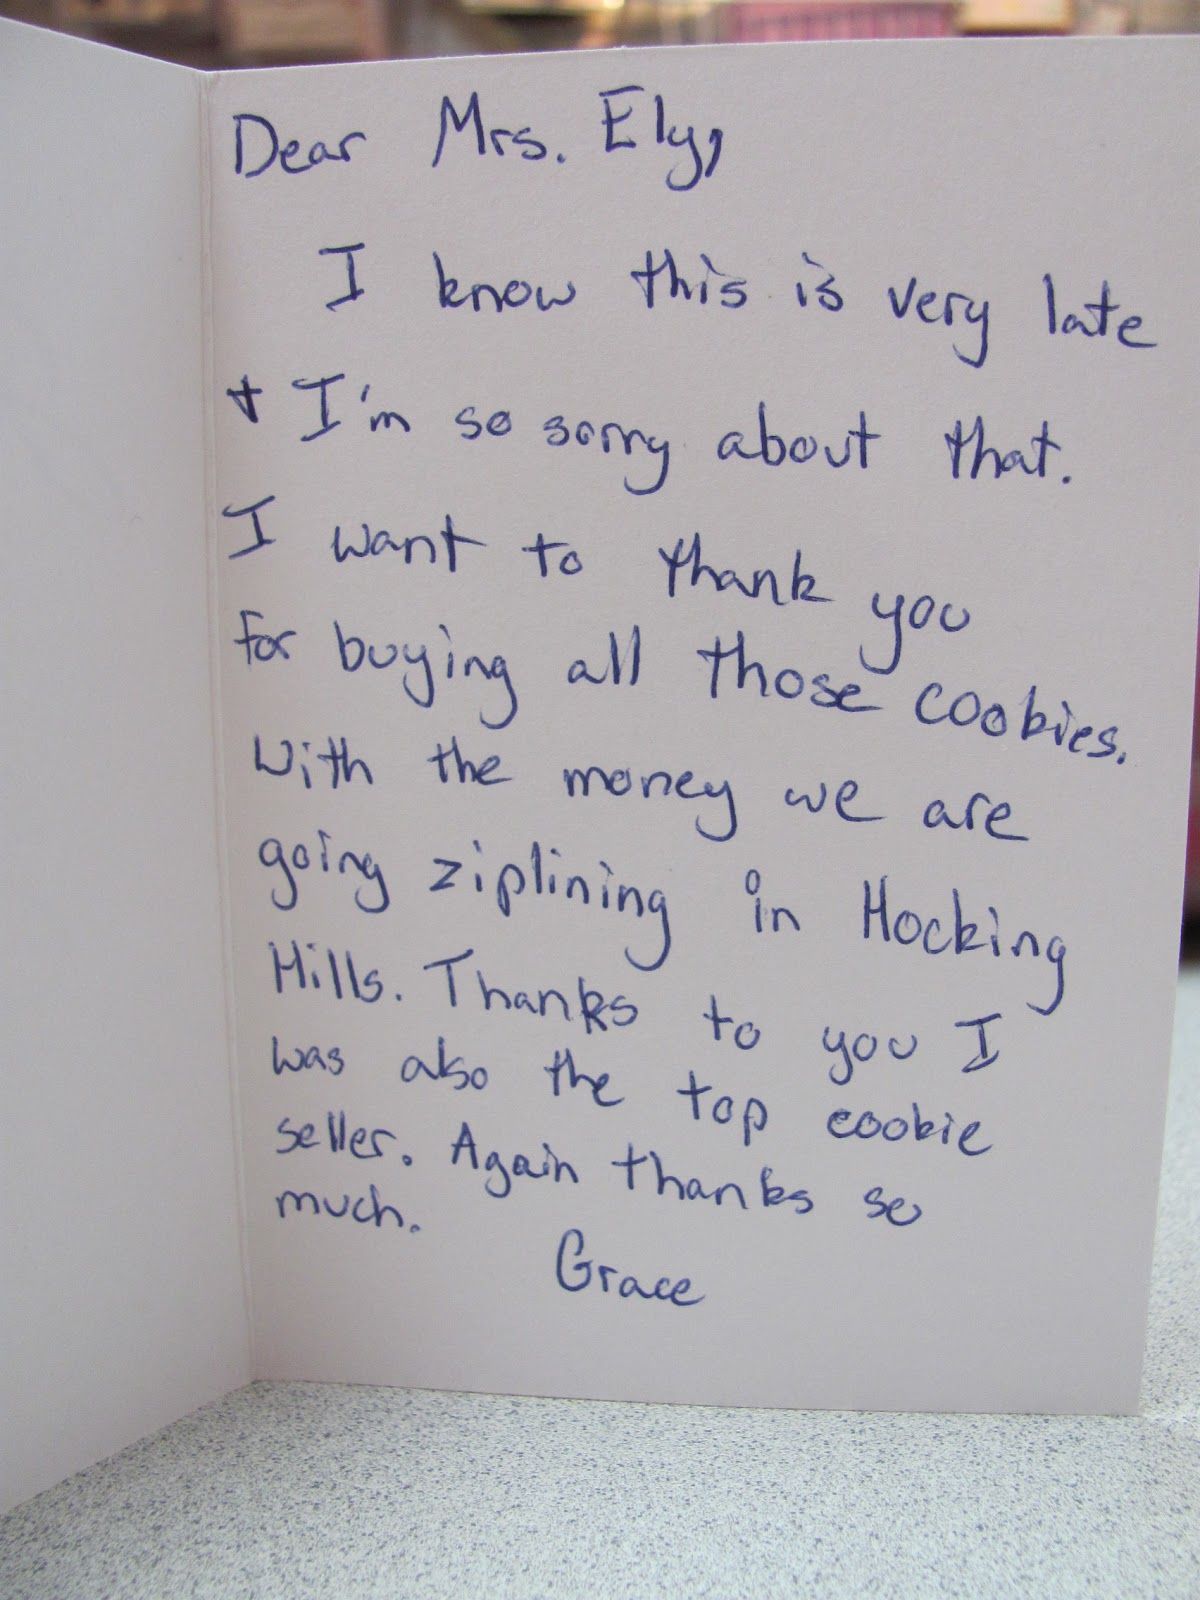 Dear Mrs. Ely,
I know this is very late
+ I'm so sorry about that.
I want to thank you
for buying all those cookies.
With the money we are
going ziplining in Hocking
Hills. Thanks to you I
was also the top cookie
seller. Again thanks so
much.
Grace